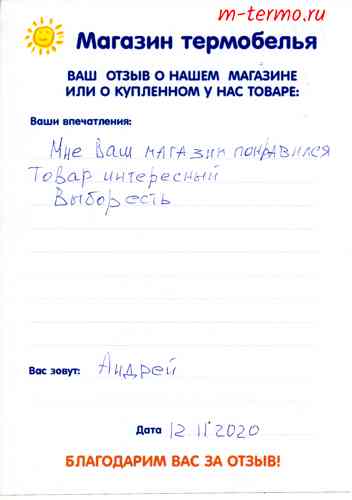 m-termo.ru
Магазин термобелья
ВАШ ОТЗЫВ О НАШЕМ МАГАЗИНЕ
ИЛИ О КУПЛЕННОМ У НАС ТОВАРЕ:
Ваши впечатления:
Мне Ваш магазин понравился
Товар интересный
Выбор есть
Вас зовут: Андрей
Дата 12.11 2020
БЛАГОДАРИМ ВАС ЗА ОТЗЫВ!